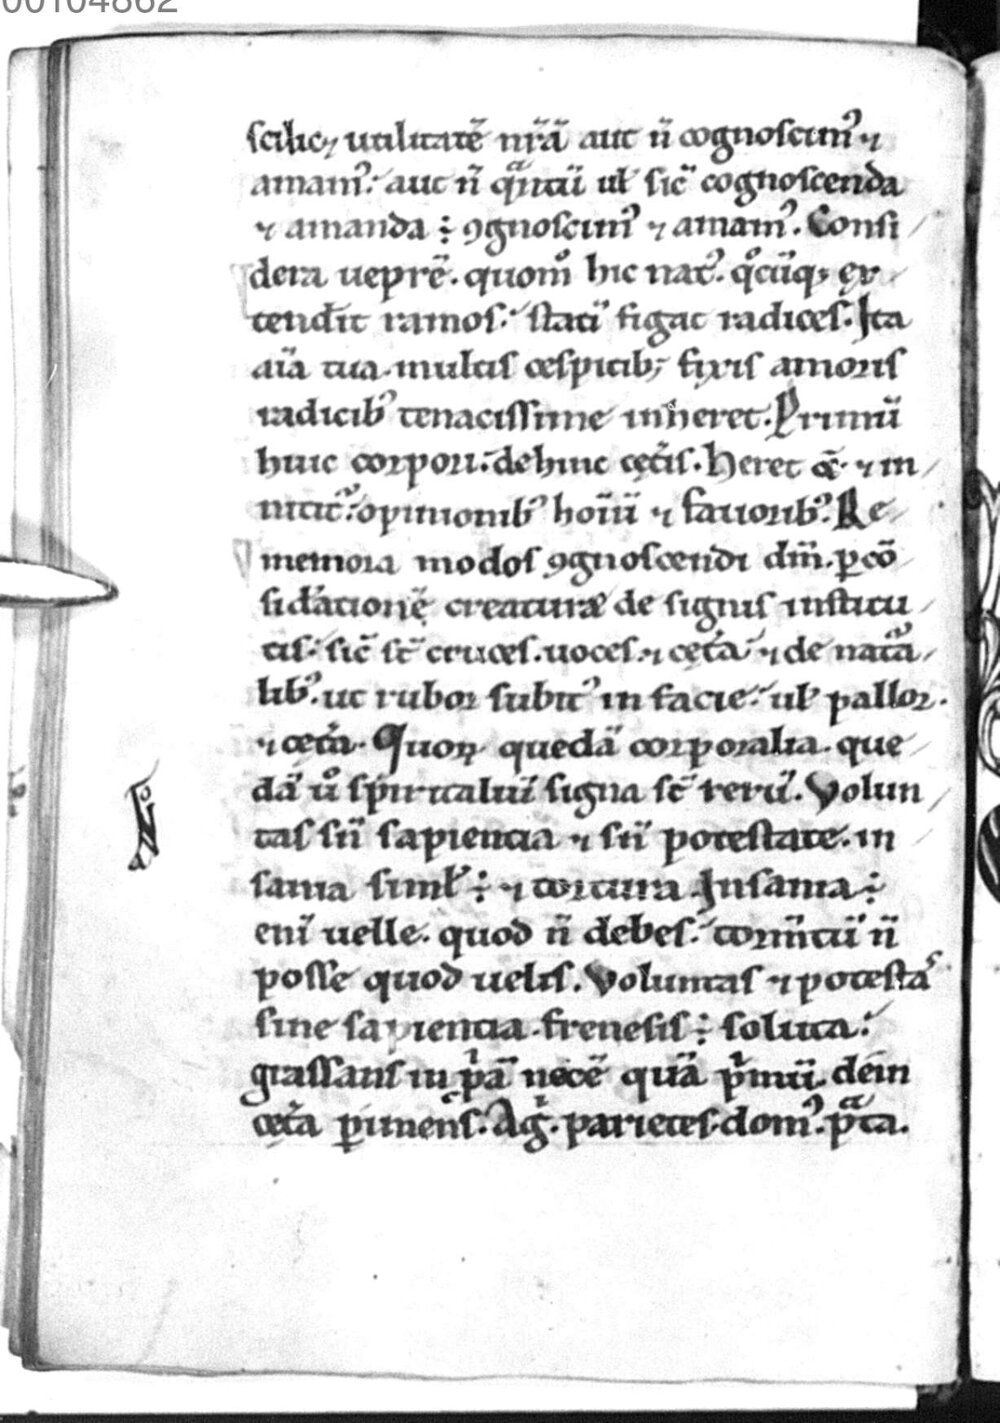 00104862
scilic; utilitatē nr̄ā aut n̄ cognoscim᾽ ⁊
amam᾽. aut n̄ qͣntū ul̄ sic̄ cognoscenda
⁊ amanda ÷ ꝯgnoscim᾽ ⁊ amam᾽. Consi
dera ueprē. quom̊ hic nat᾽. qͦcūq; ex
tendit ramos. statī figat radices. Ita
aīa tua multis cespitib; fixis amoris
radicib᾽ tenacissime inheret. Primū
huic corpori. dehinc cęt̄is. Heret &̄ ⁊ in
nitit᾽. opinionib᾽ hoīū ⁊ fauorib᾽. Re
memora modos ꝯgnoscendi dm̄. p̲ cō
sid̄ationē creaturæ de signis institu
tis. sic̄ st̄ cruces. uoces. ⁊ cęt̄a. ⁊ de natͣa
lib᾽. ut rubor subit᾽ in facie. ul̄ pallor.
⁊ cęt̄a. Quoꝝ quedā corporalia. que
dā ů spiritualiū signa st̄ rerū. Volun
tas sn̄ sapientia ⁊ sn̄ potestate. in
sania siml̄ ÷ ⁊ tortura. Insania ÷
eni uelle. quod n̄ debes. torm̄tū n̄
posse quod uelis. Voluntas ⁊ potestas
sine sapientia. frenesis ÷ soluta.
grassans in p̄ͥa nece quā p̄ͥmū dein
cęt̄a ꝑimens. Aḡ. parietes. dom᾽. pͣta.